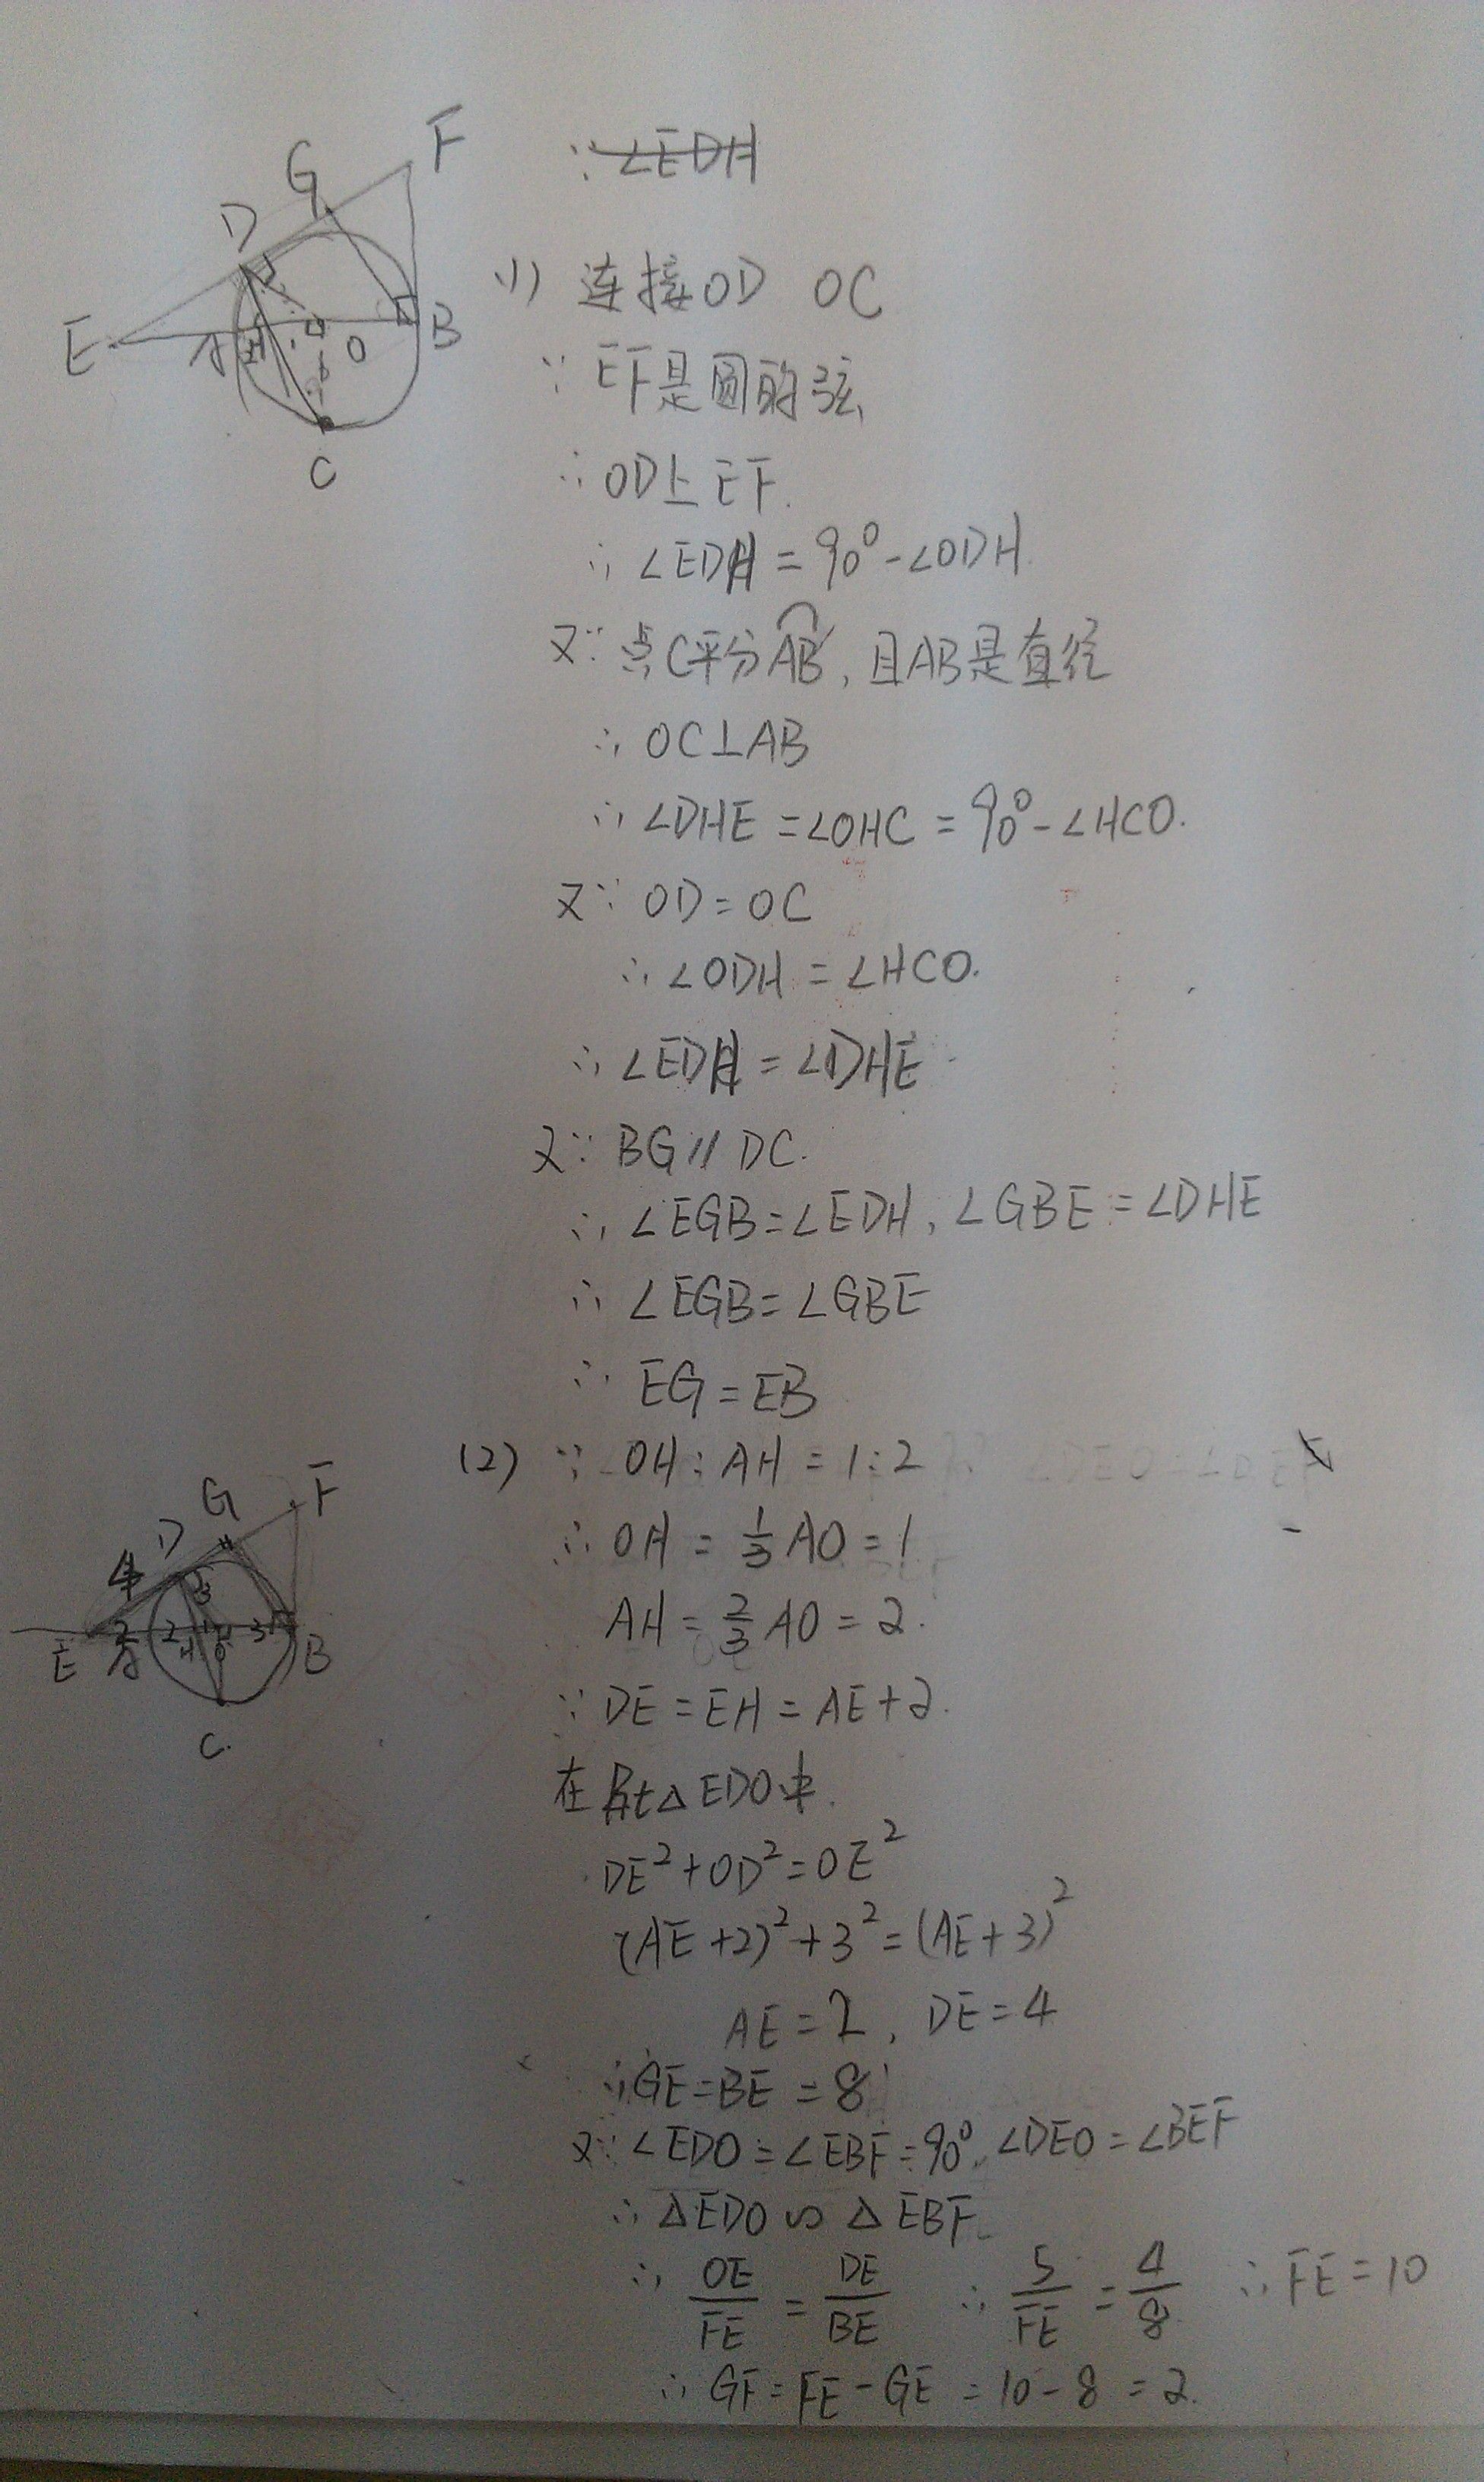 G F
D
E A H O B
C
∵ ∠EDH
(1) 连接OD OC
∵ EF是圆的弦
∴ OD⊥EF.
∴ ∠EDH = 90° - ∠ODH
又∵ 点C平分AB, 且AB是直径
∴ OC⊥AB
∴ ∠DHE = ∠OHC = 90° - ∠HCO.
又∵ OD = OC
∴ ∠ODH = ∠HCO.
∴ ∠EDH = ∠DHE
又∵ BG // DC.
∴ ∠EGB = ∠EDH, ∠GBE = ∠DHE
∴ ∠EGB = ∠GBE
∴ EG = EB
(2) ∵ OH : AH = 1 : 2
∴ OH = 1/3 AO = 1
AH = 2/3 AO = 2.
∵ DE = EH = AE + 2.
在 Rt△EDO中.
DE² + OD² = OE²
(AE + 2)² + 3² = (AE + 3)²
AE = 2, DE = 4
∴ GE = BE = 8
又∵ ∠EDO = ∠EBF = 90°, ∠DEO = ∠BEF
∴ △EDO ∽ △EBF
∴ OE/FE = DE/BE ∴ 5/FE = 4/8 ∴ FE = 10
∴ GF = FE - GE = 10 - 8 = 2.
G F
D
4 3
E 2 A 2 H 1 O 3 B
C.